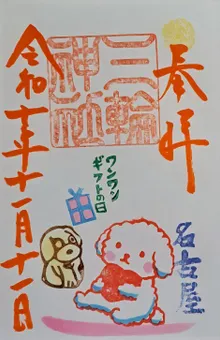 奉拝
三輪
神社
ワンワン
ギフトの日
名古屋
令和 年十一月十一日